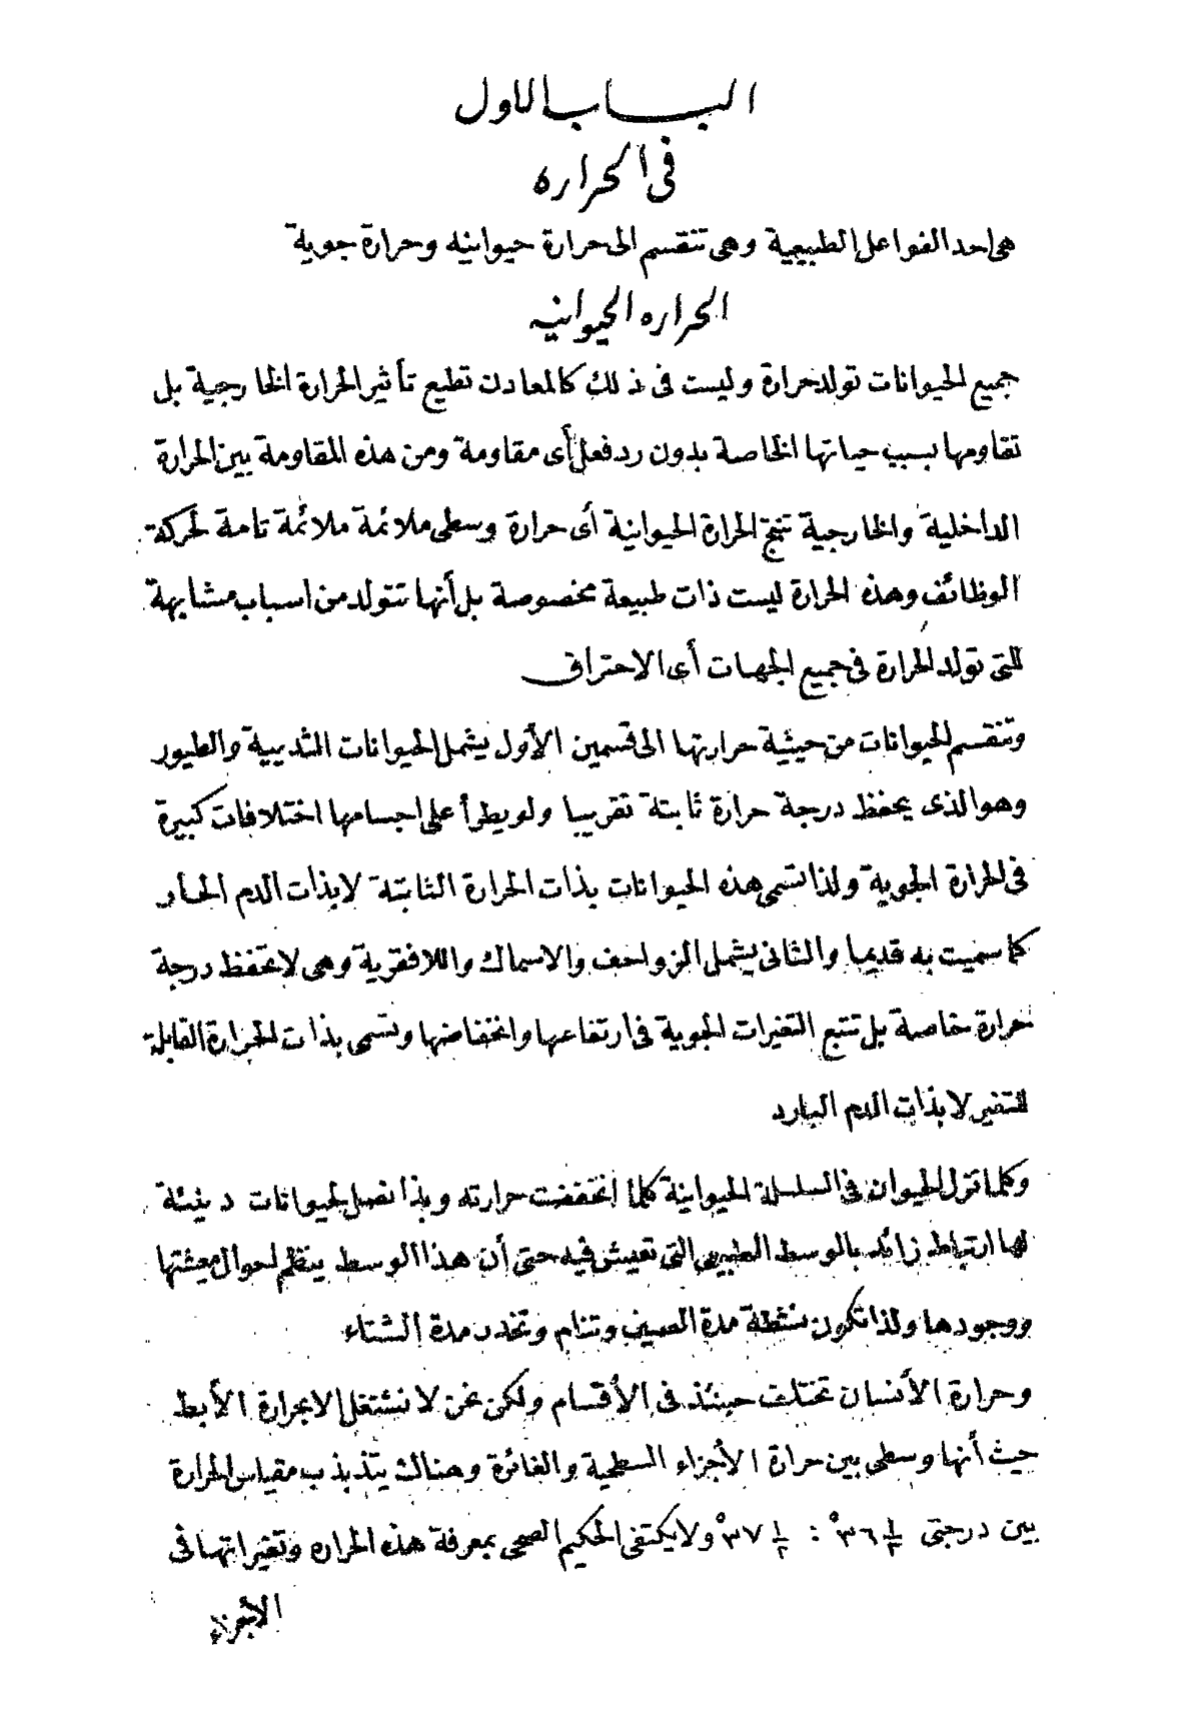 الباب الاول
فى الحراره
هى احد الفواعل الطبيعية وهى تنقسم الى حرارة حيوانيه وحرارة جوية
الحراره الحيوانيه
جميع الحيوانات تولد حرارة وليست فى ذلك كالمعادن تطيع تأثير الحرارة الخارجية بل
تقاومها بسبب حياتها الخاصة بدون رد فعل أى مقاومة ومن هذه المقاومة بين الحرارة
الداخلية والخارجية تنتج الحرارة الحيوانية أى حرارة وسطى ملائمة ملائمة تامة لحركة
الوظائف وهذه الحرارة ليست ذات طبيعة مخصوصة بل أنها تتولد من اسباب مشابهة
للتى تولد الحرارة فى جميع الجهات أى الاحتراق
وتنقسم الحيوانات من حيثية حرارتها الى قسمين الأول يشمل الحيوانات الثديية والطيور
وهو الذى يحفظ درجة حرارة ثابتة تقريبا ولو يطرأ على اجسامها اختلافات كبيرة
فى الحرارة الجوية ولذا تسمى هذه الحيوانات بذات الحرارة الثابتة لا بذات الدم الحار
كما سميت به قديما والثانى يشمل الزواحف والاسماك واللافقرية وهى لا تحفظ درجة
حرارة خاصة بل تتبع التغيرات الجوية فى ارتفاعها وانخفاضها وتسمى بذات الحرارة القابلة
للتغير لا بذات الدم البارد
وكلما تزل الحيوان فى السلسلة الحيوانية كلما انخفضت حرارته وبذا نصل لحيوانات دنيئة
لها ارتباط زائد بالوسط الطبيعى التى تعيش فيه حتى أن هذا الوسط ينظم احوال معيشتها
ووجودها ولذا تكون نشطة مدة الصيف وتنام وتخدر مدة الشتاء
وحرارة الأنسان تختلف حينئذ فى الأقسام ولكن نحن لا نشتغل الا بحرارة الأبط
حيث أنها وسطى بين حرارة الأجزاء السطحية والغائرة وهنالك يتذبذب مقياس الحرارة
بين درجتى ٣٦° ١/٢ : ٣٧° ١/٢ ولا يكتفى الحكيم الصحى بمعرفة هذه الحراره وتغيراتها فى
الأجزاء